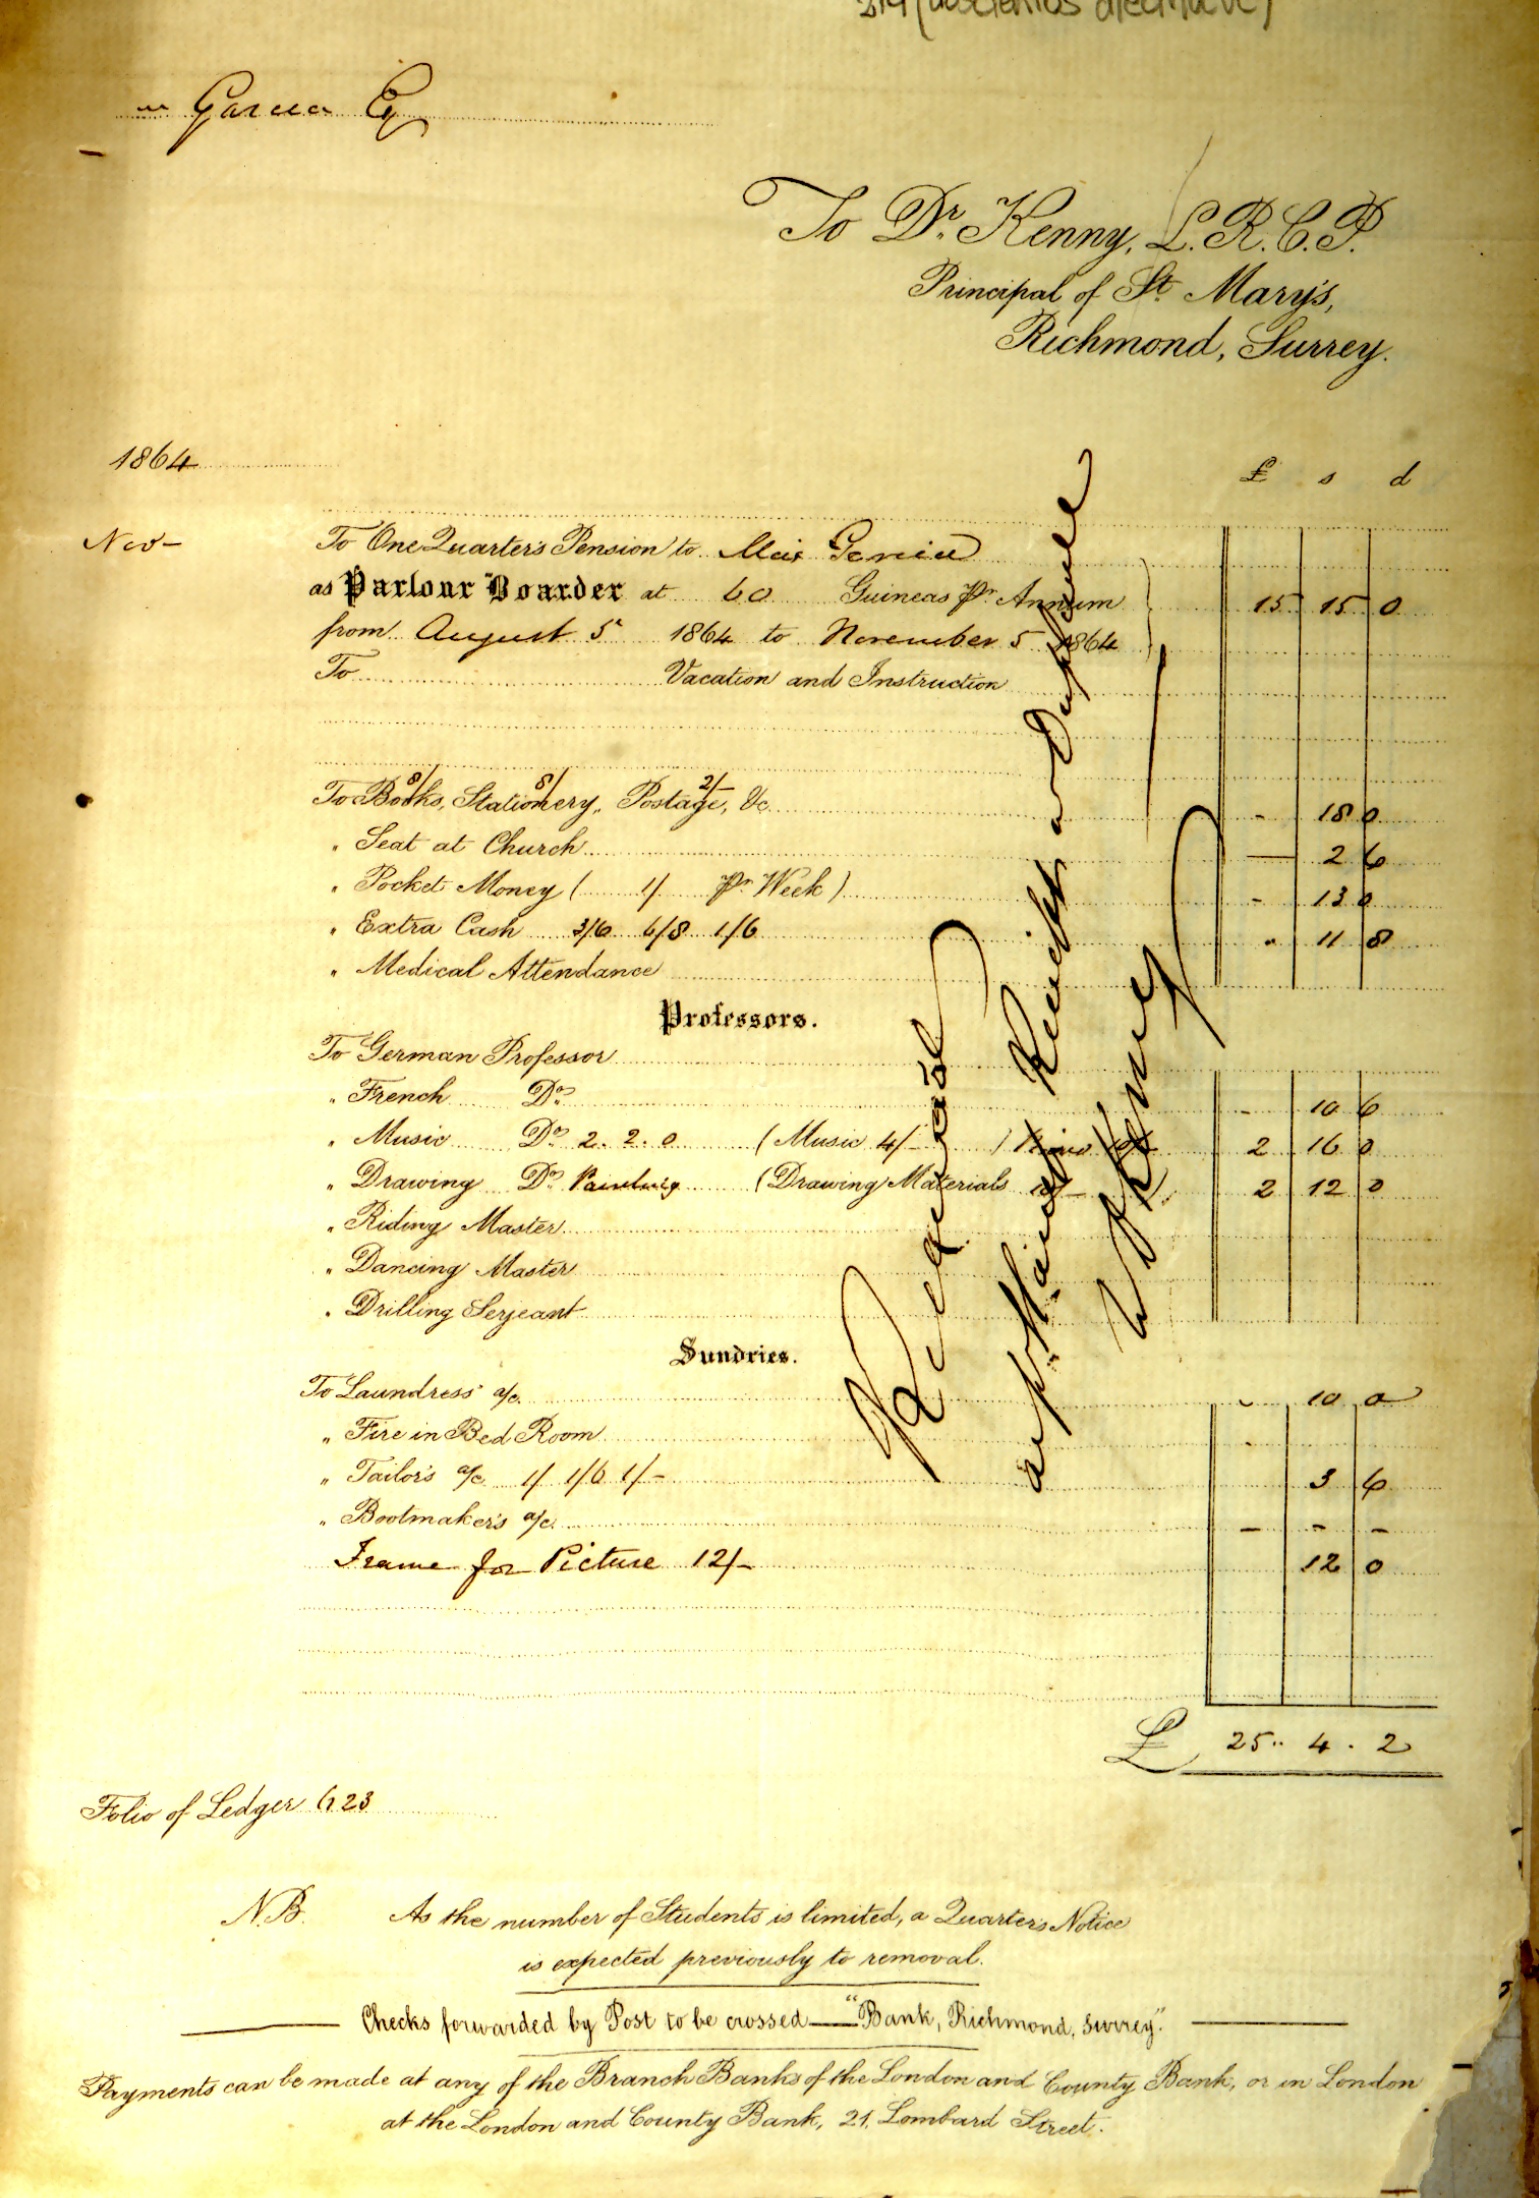 Garcia Esq
To Dr. Kenny, L.R.C.P.
Principal of St. Mary's,
Richmond, Surrey.
1864
£ s d
Nov-
To One Quarter's Pension to Garcia
as Parlour Boarder at 60 Guineas Pr. Annum 15 15 0
from August 5 1864 to November 5 1864
To Vacation and Instruction
8/ 8/ 2/-
To Books, Stationery, Postage, &c - 18 0
" Seat at Church — 2 6
" Pocket Money ( 1/ Pr. Week ) - 13 0
" Extra Cash 3/6 6/8 1/6 " 11 8
" Medical Attendance
Professors.
To German Professor
" French Do. - 10 6
" Music Do. 2. 2. 0 ( Music 4/- ) 10/- 2 16 0
" Drawing Do. Painting ( Drawing Materials 10/- 2 12 0
" Riding Master
" Dancing Master
" Drilling Serjeant
Sundries.
To Laundress' a/c. - 10 0
" Fire in Bed Room -
" Tailor's a/c. 1/ 1/6 1/- 3 6
" Bootmaker's a/c. - - -
Frame for Picture 12/- 12 0
£ 25.. 4 . 2
Received
as pr. Receipt a Duplicate
W Kenny
Folio of Ledger 623
N.B. As the number of Students is limited, a Quarter's Notice
is expected previously to removal.
Checks forwarded by Post to be crossed — "Bank, Richmond, Surrey."
Payments can be made at any of the Branch Banks of the London and County Bank, or in London
at the London and County Bank, 21, Lombard Street.